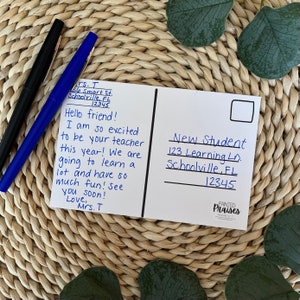 Mrs. T
Smart St.
Schoolville, FL
12345
Hello friend!
I am so excited
to be your teacher
this year! We are
going to learn a
lot and have so
much fun! See
you soon!
Love,
Mrs. T
New Student
123 Learning Ln.
Schoolville, FL
12345
Praises